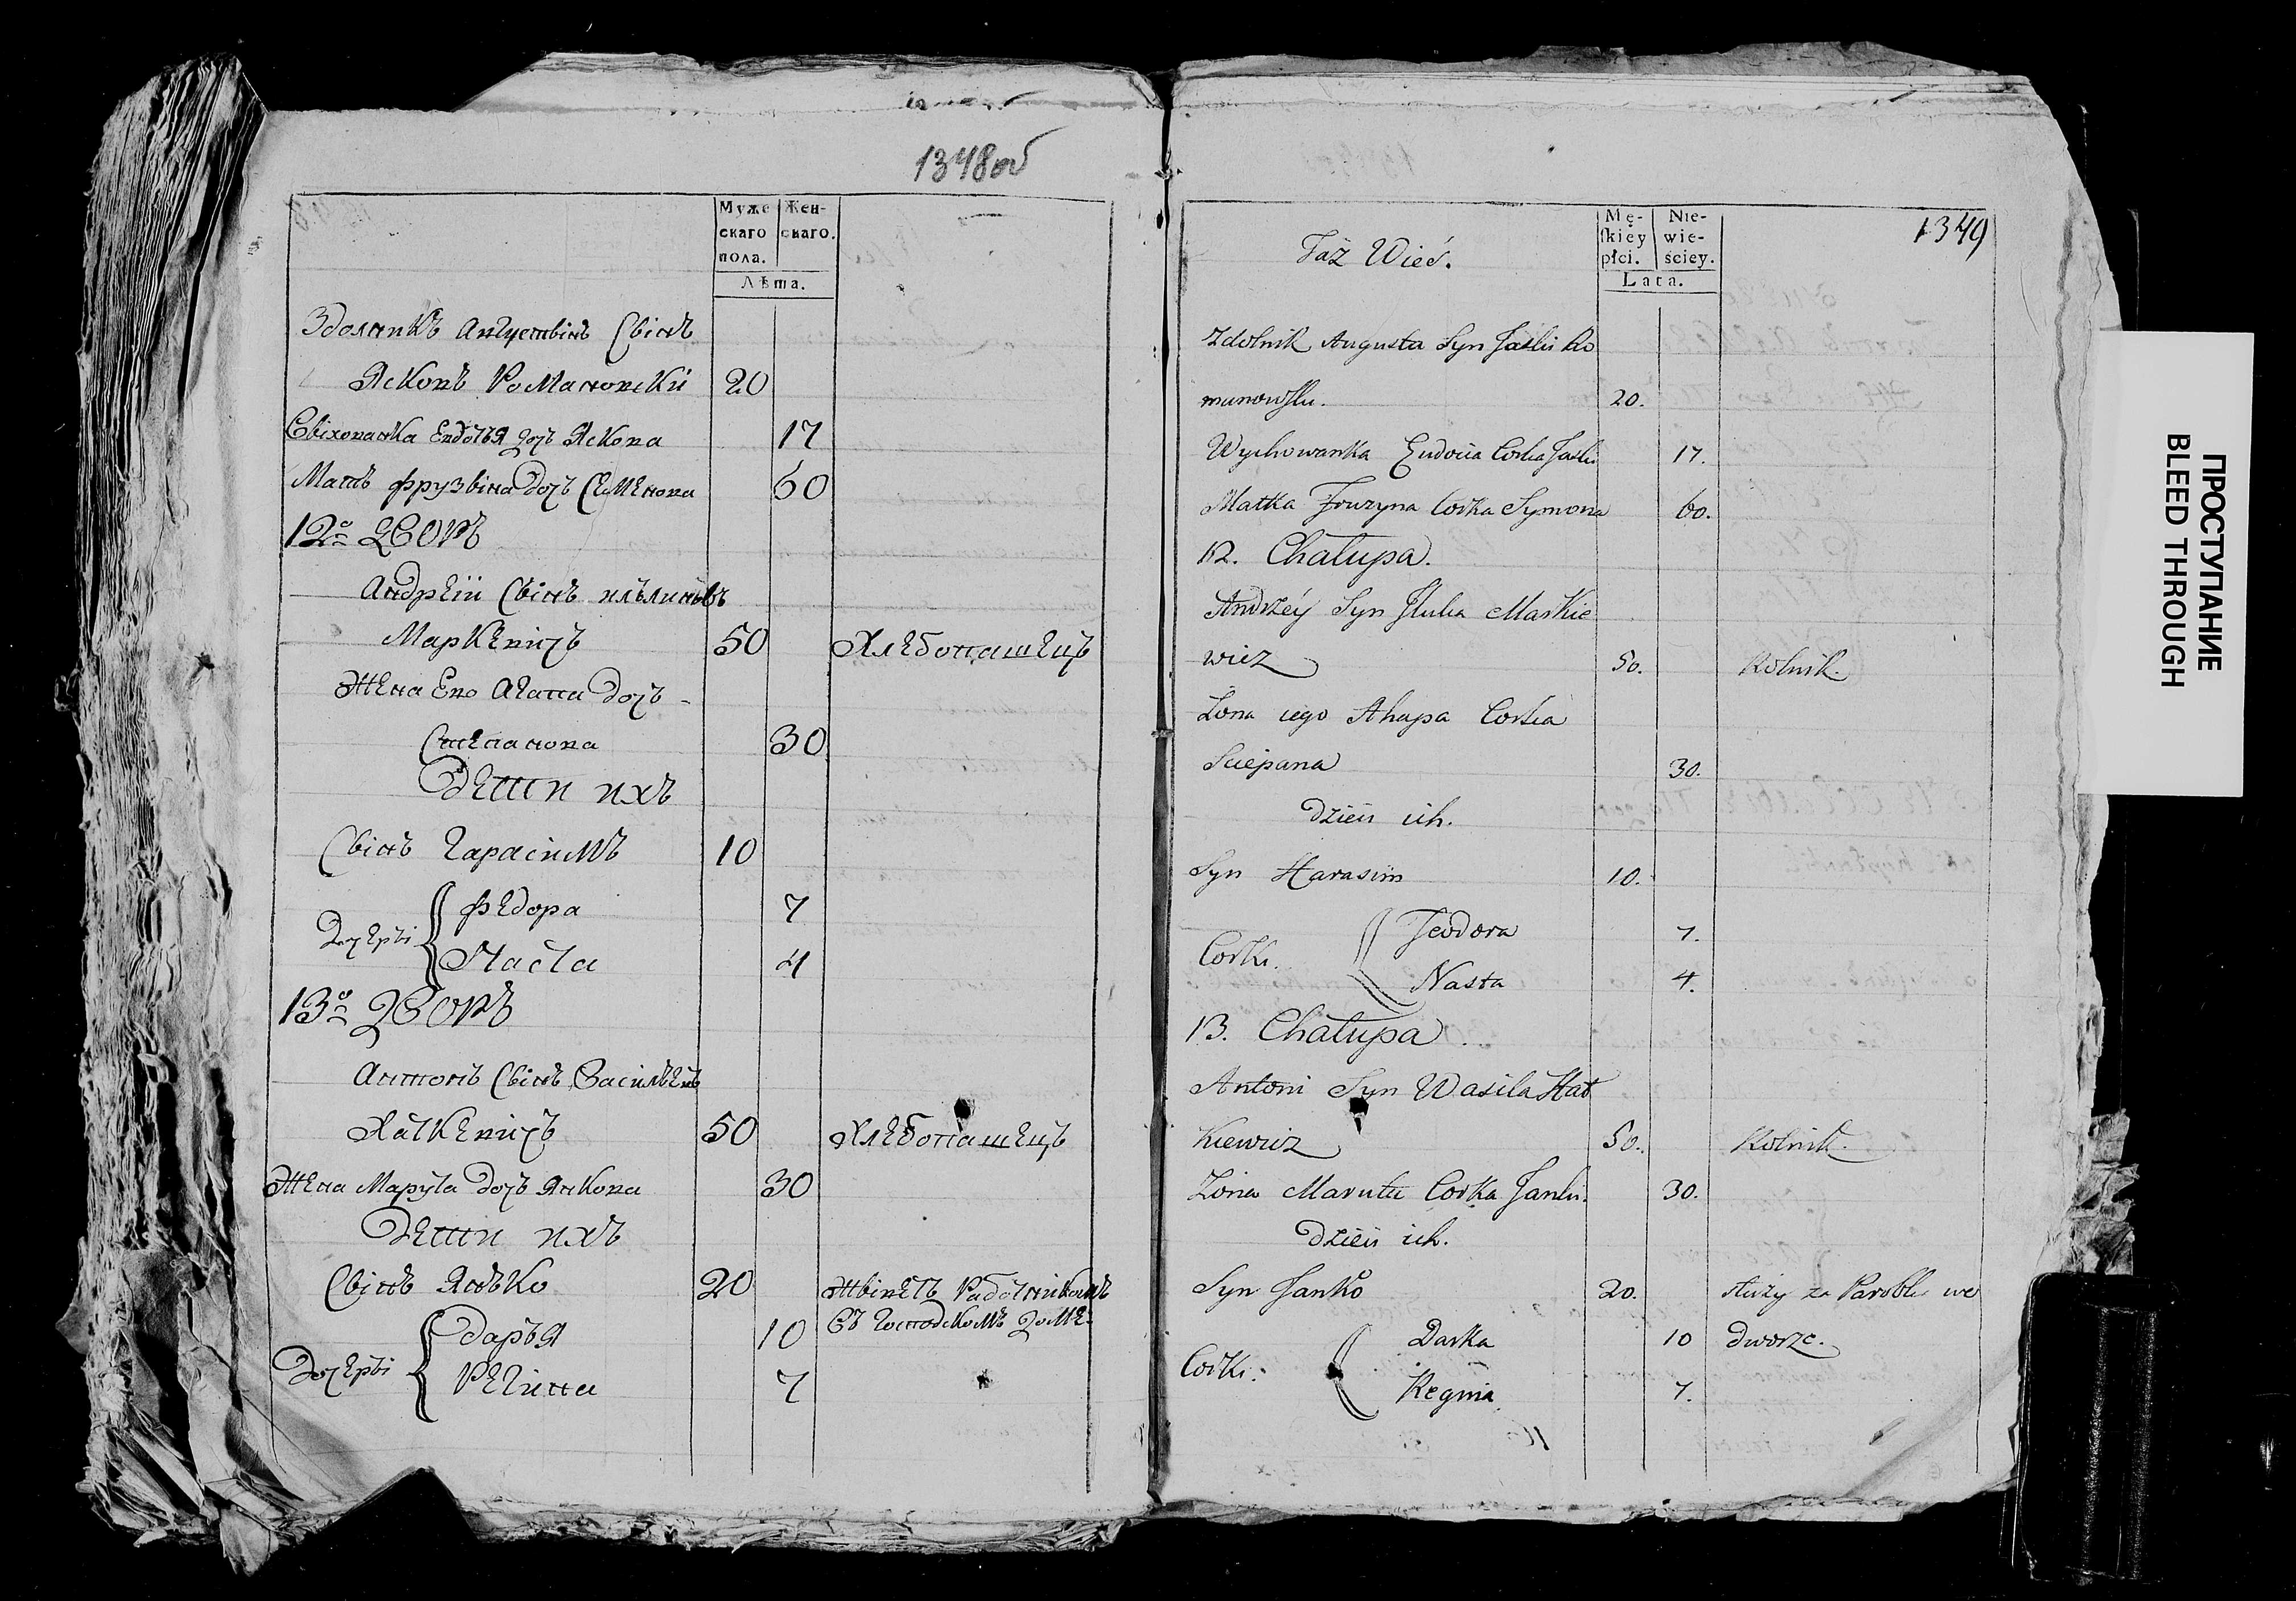 1348об
Муже
скаго
пола.
Жен-
скаго.
Лѣта.
Августвінъ Свінъ
Ясковъ Романовскй 20
Свіхованка Евдотья доч Яскова 17
Мать Фрузвіна доч Семенова 60
12й дворъ
Андреій Свінъ
Маркевичъ 50 Хлебопашецъ
Жена Его Агапа доч -
Степанова 30
Дети ихъ
Свінъ Гарасимъ 10
Федора 7
Дочерьі
Наста 4
13й дворъ
Антонъ Свінъ Васильевъ
Хаткевичъ 50 Хлебопашецъ
Жена Марута доч Янкова 30
Дети ихъ
Свінъ Янько 20 Жвіветъ Работникомъ
Въ Господскомъ доме.
Дарья 10
Дочерьі
Регина 7
1349
Taż Wieś.
Mę-
ſkiey
płci.
Nie-
wie-
ściey.
Lata.
Zdolnik Augusta Syn Jaśki Ro
manowſki. 20.
Wychowanka Eudocia Corka Jaśki 17.
Matka Fruzyna Corka Symona 60.
12. Chałupa.
Andrzéy Syn Markie
wicz 50. Rolnik.
Żona iego Ahapa Corka
Sciepana 30.
Dzieci ich.
Syn Harasim 10.
Teodora 7.
Corki.
Nasta 4.
13. Chałupa.
Antoni Syn Wasila Hat
kiewicz 50. Rolnik.
Żona Maruta Corka Janki. 30.
Dzieci ich.
Syn Janko 20. służy za Parobka we
Darka 10 dworze.
Corki.
Regina 7.
ПРОСТУПАНИЕ
BLEED THROUGH